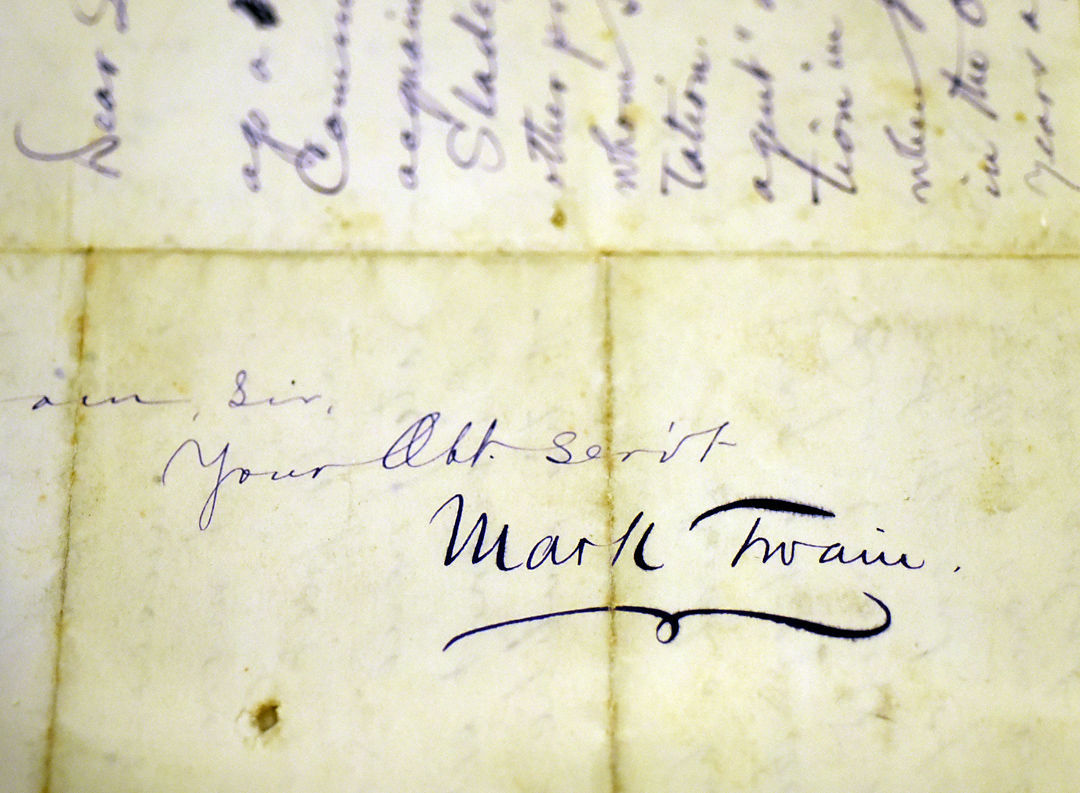 Dear S
ago a
Comm
acquain
Slade
other
whom
tation.
agent"
tion in
when
in the
years a
am, Sir,
Your Obt. Serv't
Mark Twain.